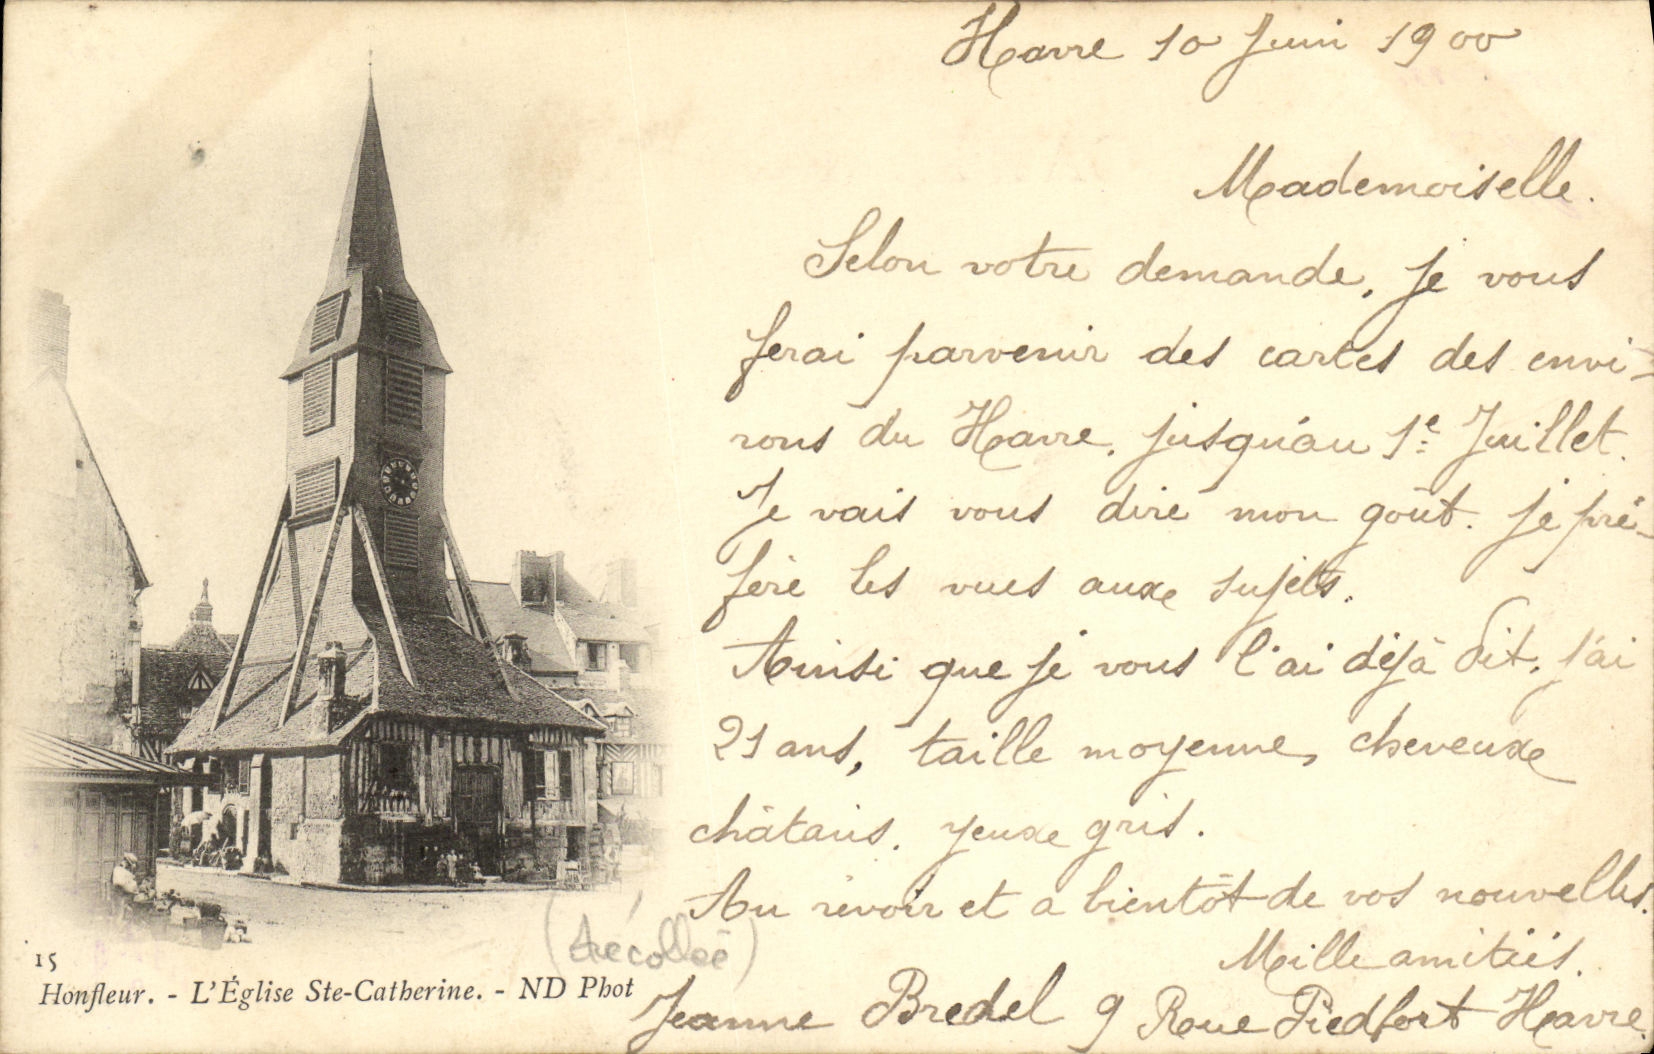 Havre 10 Juin 1900
Mademoiselle.
Selon votre demande, je vous
ferai parvenir des cartes des envi-
rons du Havre, jusqu'au 1e Juillet.
Je vais vous dire mon goût. je pré-
fère les vues aux sujets.
Ainsi que je vous l'ai déjà dit, j'ai
21 ans, taille moyenne, cheveux
châtains. yeux gris.
Au revoir et a bientôt de vos nouvelles.
Mille amitiés.
Jeanne Bredel 9 Roue Piedfort Havre.
15
Honfleur. - L'Église Ste-Catherine. - ND Phot